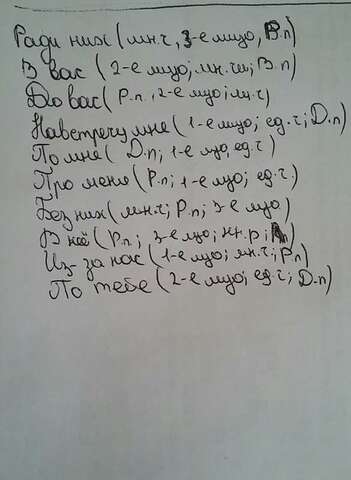 Ради них (мн.ч, 3-е лицо, В.п)
В вас (2-е лицо; мн.чи; В.п)
До вас (Р.п., 2-е лицо; мн.ч)
Навстречу мне (1-е лицо; ед.ч; Д.п)
По мне (Д.п; 1-е лицо, ед.ч)
Про меня (Р.п; 1-е лицо; ед.ч)
Без них (мн.ч; Р.п; 3-е лицо)
В неё (Р.п; 3-е лицо; ж.р;
Из-за нас (1-е лицо; мн.ч; Р.п)
По тебе (2-е лицо; ед.ч; Д.п)